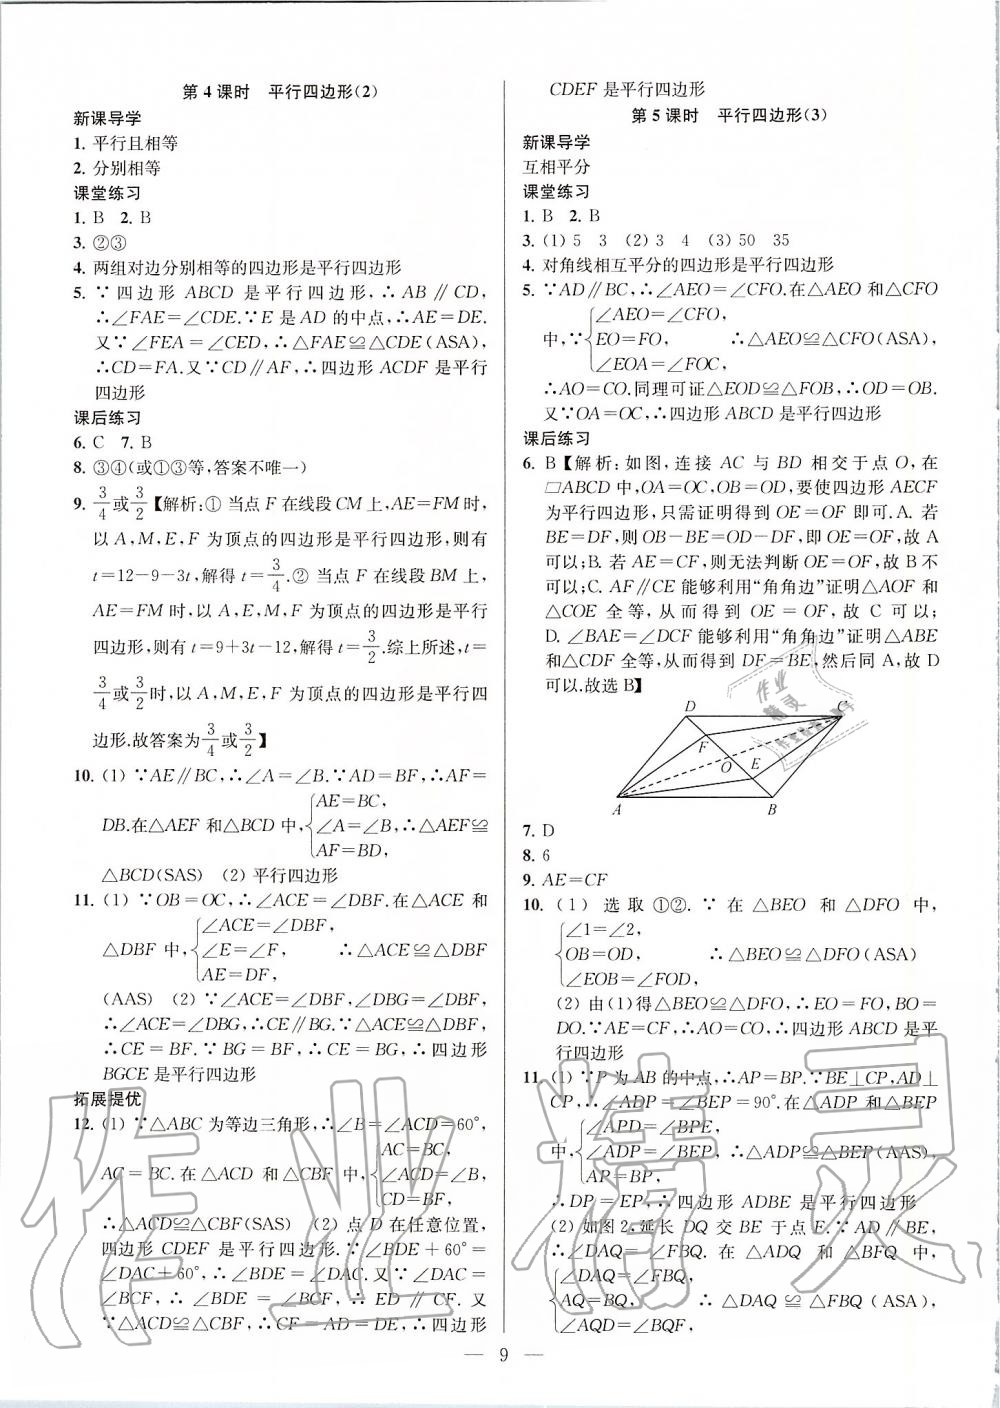 第4课时　平行四边形(2)
新课导学
1. 平行且相等
2. 分别相等
课堂练习
1. B　2. B
3. ②③
4. 两组对边分别相等的四边形是平行四边形
5. ∵四边形 ABCD 是平行四边形,∴AB∥CD,
∴∠FAE=∠CDE.∵E 是 AD 的中点,∴AE=DE.
又∵∠FEA=∠CED,∴△FAE≌△CDE(ASA),
∴CD=FA.又∵CD∥AF,∴四边形 ACDF 是平行
四边形
课后练习
6. C　7. B
8. ③④(或①③等,答案不唯一)
9. 3/4或3/2【解析:① 当点 F 在线段 CM 上,AE=FM 时,
以 A,M,E,F 为顶点的四边形是平行四边形,则有
t=12-9-3t,解得 t=3/4.② 当点 F 在线段 BM 上,
AE=FM 时,以 A,E,M,F 为顶点的四边形是平行
四边形,则有 t=9+3t-12,解得 t=3/2.综上所述,t=
3/4或3/2时,以 A,M,E,F 为顶点的四边形是平行四
边形.故答案为3/4或3/2】
10. (1) ∵AE∥BC,∴∠A=∠B.∵AD=BF,∴AF=
DB.在△AEF 和△BCD 中,{AE=BC,
∠A=∠B,∴△AEF≌
AF=BD,
△BCD(SAS)　(2) 平行四边形
11. (1) ∵OB=OC,∴∠ACE=∠DBF.在△ACE 和
△DBF 中,{∠ACE=∠DBF,
∠E=∠F,　∴△ACE≌△DBF
AE=DF,
(AAS)　(2) ∵∠ACE=∠DBF,∠DBG=∠DBF,
∴∠ACE=∠DBG,∴CE∥BG.∵△ACE≌△DBF,
∴CE=BF.∵BG=BF,∴CE=BG,∴四边形
BGCE 是平行四边形
拓展提优
12. (1) ∵△ABC 为等边三角形,∴∠B=∠ACD=60°,
AC=BC.在△ACD 和△CBF 中,{AC=BC,
∠ACD=∠B,
CD=BF,
∴△ACD≌△CBF(SAS)　(2) 点 D 在任意位置,
四边形 CDEF 是平行四边形.∵∠BDE+60°=
∠DAC+60°,∴∠BDE=∠DAC.又∵∠DAC=
∠BCF,∴∠BDE=∠BCF,∴ED∥CF.又
∵△ACD≌△CBF,∴CF=AD=DE,∴四边形
CDEF 是平行四边形
第5课时　平行四边形(3)
新课导学
互相平分
课堂练习
1. B　2. B
3. (1) 5　3　(2) 3　4　(3) 50　35
4. 对角线相互平分的四边形是平行四边形
5. ∵AD∥BC,∴∠AEO=∠CFO.在△AEO 和△CFO
中,∵{∠AEO=∠CFO,
EO=FO,　∴△AEO≌△CFO(ASA),
∠EOA=∠FOC,
∴AO=CO.同理可证△EOD≌△FOB,∴OD=OB.
又∵OA=OC,∴四边形 ABCD 是平行四边形
课后练习
6. B【解析:如图,连接 AC 与 BD 相交于点 O,在
□ABCD 中,OA=OC,OB=OD,要使四边形 AECF
为平行四边形,只需证明得到 OE=OF 即可.A. 若
BE=DF,则 OB-BE=OD-DF,即 OE=OF,故 A
可以;B. 若 AE=CF,则无法判断 OE=OF,故 B 不
可以;C. AF∥CE 能够利用“角角边”证明△AOF 和
△COE 全等,从而得到 OE=OF,故 C 可以;
D. ∠BAE=∠DCF 能够利用“角角边”证明△ABE
和△CDF 全等,从而得到 DF=BE,然后同 A,故 D
可以.故选 B】
D
C
F
O
E
A
B
7. D
8. 6
9. AE=CF
10. (1) 选取①②.∵在△BEO 和△DFO 中,
{∠1=∠2,
OB=OD,　∴△BEO≌△DFO(ASA)
∠EOB=∠FOD,
(2) 由(1)得△BEO≌△DFO,∴EO=FO,BO=
DO.∵AE=CF,∴AO=CO,∴四边形 ABCD 是平
行四边形
11. (1) ∵P 为 AB 的中点,∴AP=BP.∵BE⊥CP,AD⊥
CP,∴∠ADP=∠BEP=90°.在△ADP 和△BEP
中,{∠APD=∠BPE,
∠ADP=∠BEP,　∴△ADP≌△BEP(AAS),
AP=BP,
∴DP=EP,∴四边形 ADBE 是平行四边形
(2) 如图2,延长 DQ 交 BE 于点 F.∵AD∥BE,
∴∠DAQ=∠FBQ.在△ADQ 和△BFQ 中,
{∠DAQ=∠FBQ,
AQ=BQ,　∴△DAQ≌△FBQ(ASA),
∠AQD=∠BQF,
— 9 —
作业精灵
作业
精灵